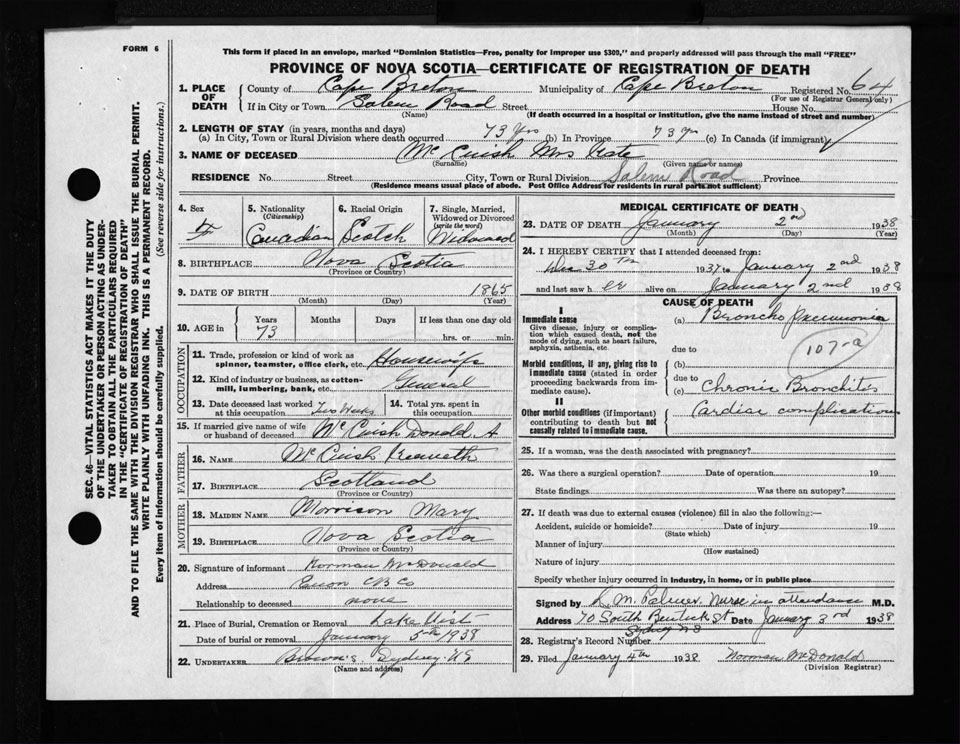 FORM 6
This form if placed in an envelope, marked "Dominion Statistics—Free, penalty for improper use $300," and properly addressed will pass through the mail "FREE"
PROVINCE OF NOVA SCOTIA—CERTIFICATE OF REGISTRATION OF DEATH
SEC. 46—VITAL STATISTICS ACT MAKES IT THE DUTY
OF THE UNDERTAKER OR PERSON ACTING AS UNDER-
TAKER TO OBTAIN ALL THE PARTICULARS REQUIRED
IN THE "CERTIFICATE OF REGISTRATION OF DEATH"
AND TO FILE THE SAME WITH THE DIVISION REGISTRAR WHO SHALL ISSUE THE BURIAL PERMIT.
WRITE PLAINLY WITH UNFADING INK. THIS IS A PERMANENT RECORD.
Every item of information should be carefully supplied. (See reverse side for instructions.)
1. PLACE OF DEATH County of Cape Breton Municipality of Cape Breton Registered No. 64
(For use of Registrar General only)
If in City or Town Salem Road Street House No.
(Name) (If death occurred in a hospital or institution, give the name instead of street and number)
2. LENGTH OF STAY (in years, months and days)
(a) In City, Town or Rural Division where death occurred 73 yrs (b) In Province 73 yr (c) In Canada (if immigrant)
3. NAME OF DECEASED McCuish Mrs Kate
(Surname) (Given name or names)
RESIDENCE No. Street City, Town or Rural Division Salem Road Province
(Residence means usual place of abode. Post Office Address for residents in rural parts not sufficient)
4. Sex F
5. Nationality (Citizenship) Canadian
6. Racial Origin Scotch
7. Single, Married, Widowed or Divorced (write the word) Widowed
8. BIRTHPLACE Nova Scotia
(Province or Country)
9. DATE OF BIRTH 1865
(Month) (Day) (Year)
10. AGE in Years 73 Months Days If less than one day old
hrs. or min.
OCCUPATION
11. Trade, profession or kind of work as spinner, teamster, office clerk, etc. Housewife
12. Kind of industry or business, as cotton-mill, lumbering, bank, etc. General
13. Date deceased last worked at this occupation Two Weeks 14. Total yrs. spent in this occupation
15. If married give name of wife or husband of deceased McCuish Donald A.
FATHER
16. NAME McCuish Kenneth
17. BIRTHPLACE Scotland
(Province or Country)
MOTHER
18. MAIDEN NAME Morrison Mary
19. BIRTHPLACE Nova Scotia
(Province or Country)
20. Signature of informant Norman McDonald
Address Enon CB Co
Relationship to deceased none
21. Place of Burial, Cremation or Removal Lake Uist
Date of burial or removal January 5th 1938
22. UNDERTAKER Brown's Sydney NS
(Name and address)
MEDICAL CERTIFICATE OF DEATH
23. DATE OF DEATH January 2nd 1938
(Month) (Day) (Year)
24. I HEREBY CERTIFY that I attended deceased from:
Dec 30th 1937 to January 2nd 1938
and last saw her alive on January 2nd 1938
CAUSE OF DEATH
I
Immediate cause (a) Broncho pneumonia
Give disease, injury or complication which caused death, not the mode of dying, such as heart failure, asphyxia, asthenia, etc.
due to
107-a
Morbid conditions, if any, giving rise to immediate cause (stated in order proceeding backwards from immediate cause). (b)
due to
(c) Chronic Bronchitis
II
Other morbid conditions (if important) contributing to death but not causally related to immediate cause. Cardiac complications
25. If a woman, was the death associated with pregnancy?
26. Was there a surgical operation? Date of operation 19
State findings Was there an autopsy?
27. If death was due to external causes (violence) fill in also the following:—
Accident, suicide or homicide? Date of injury 19
(State which)
Manner of injury
(How sustained)
Nature of injury
Specify whether injury occurred in industry, in home, or in public place
Signed by L. M. Palmer, Nurse in attendance M.D.
Address 70 South Bentick St Date January 3rd 1938
Sydney NS
28. Registrar's Record Number
29. Filed January 4th 1938 Norman McDonald
(Division Registrar)